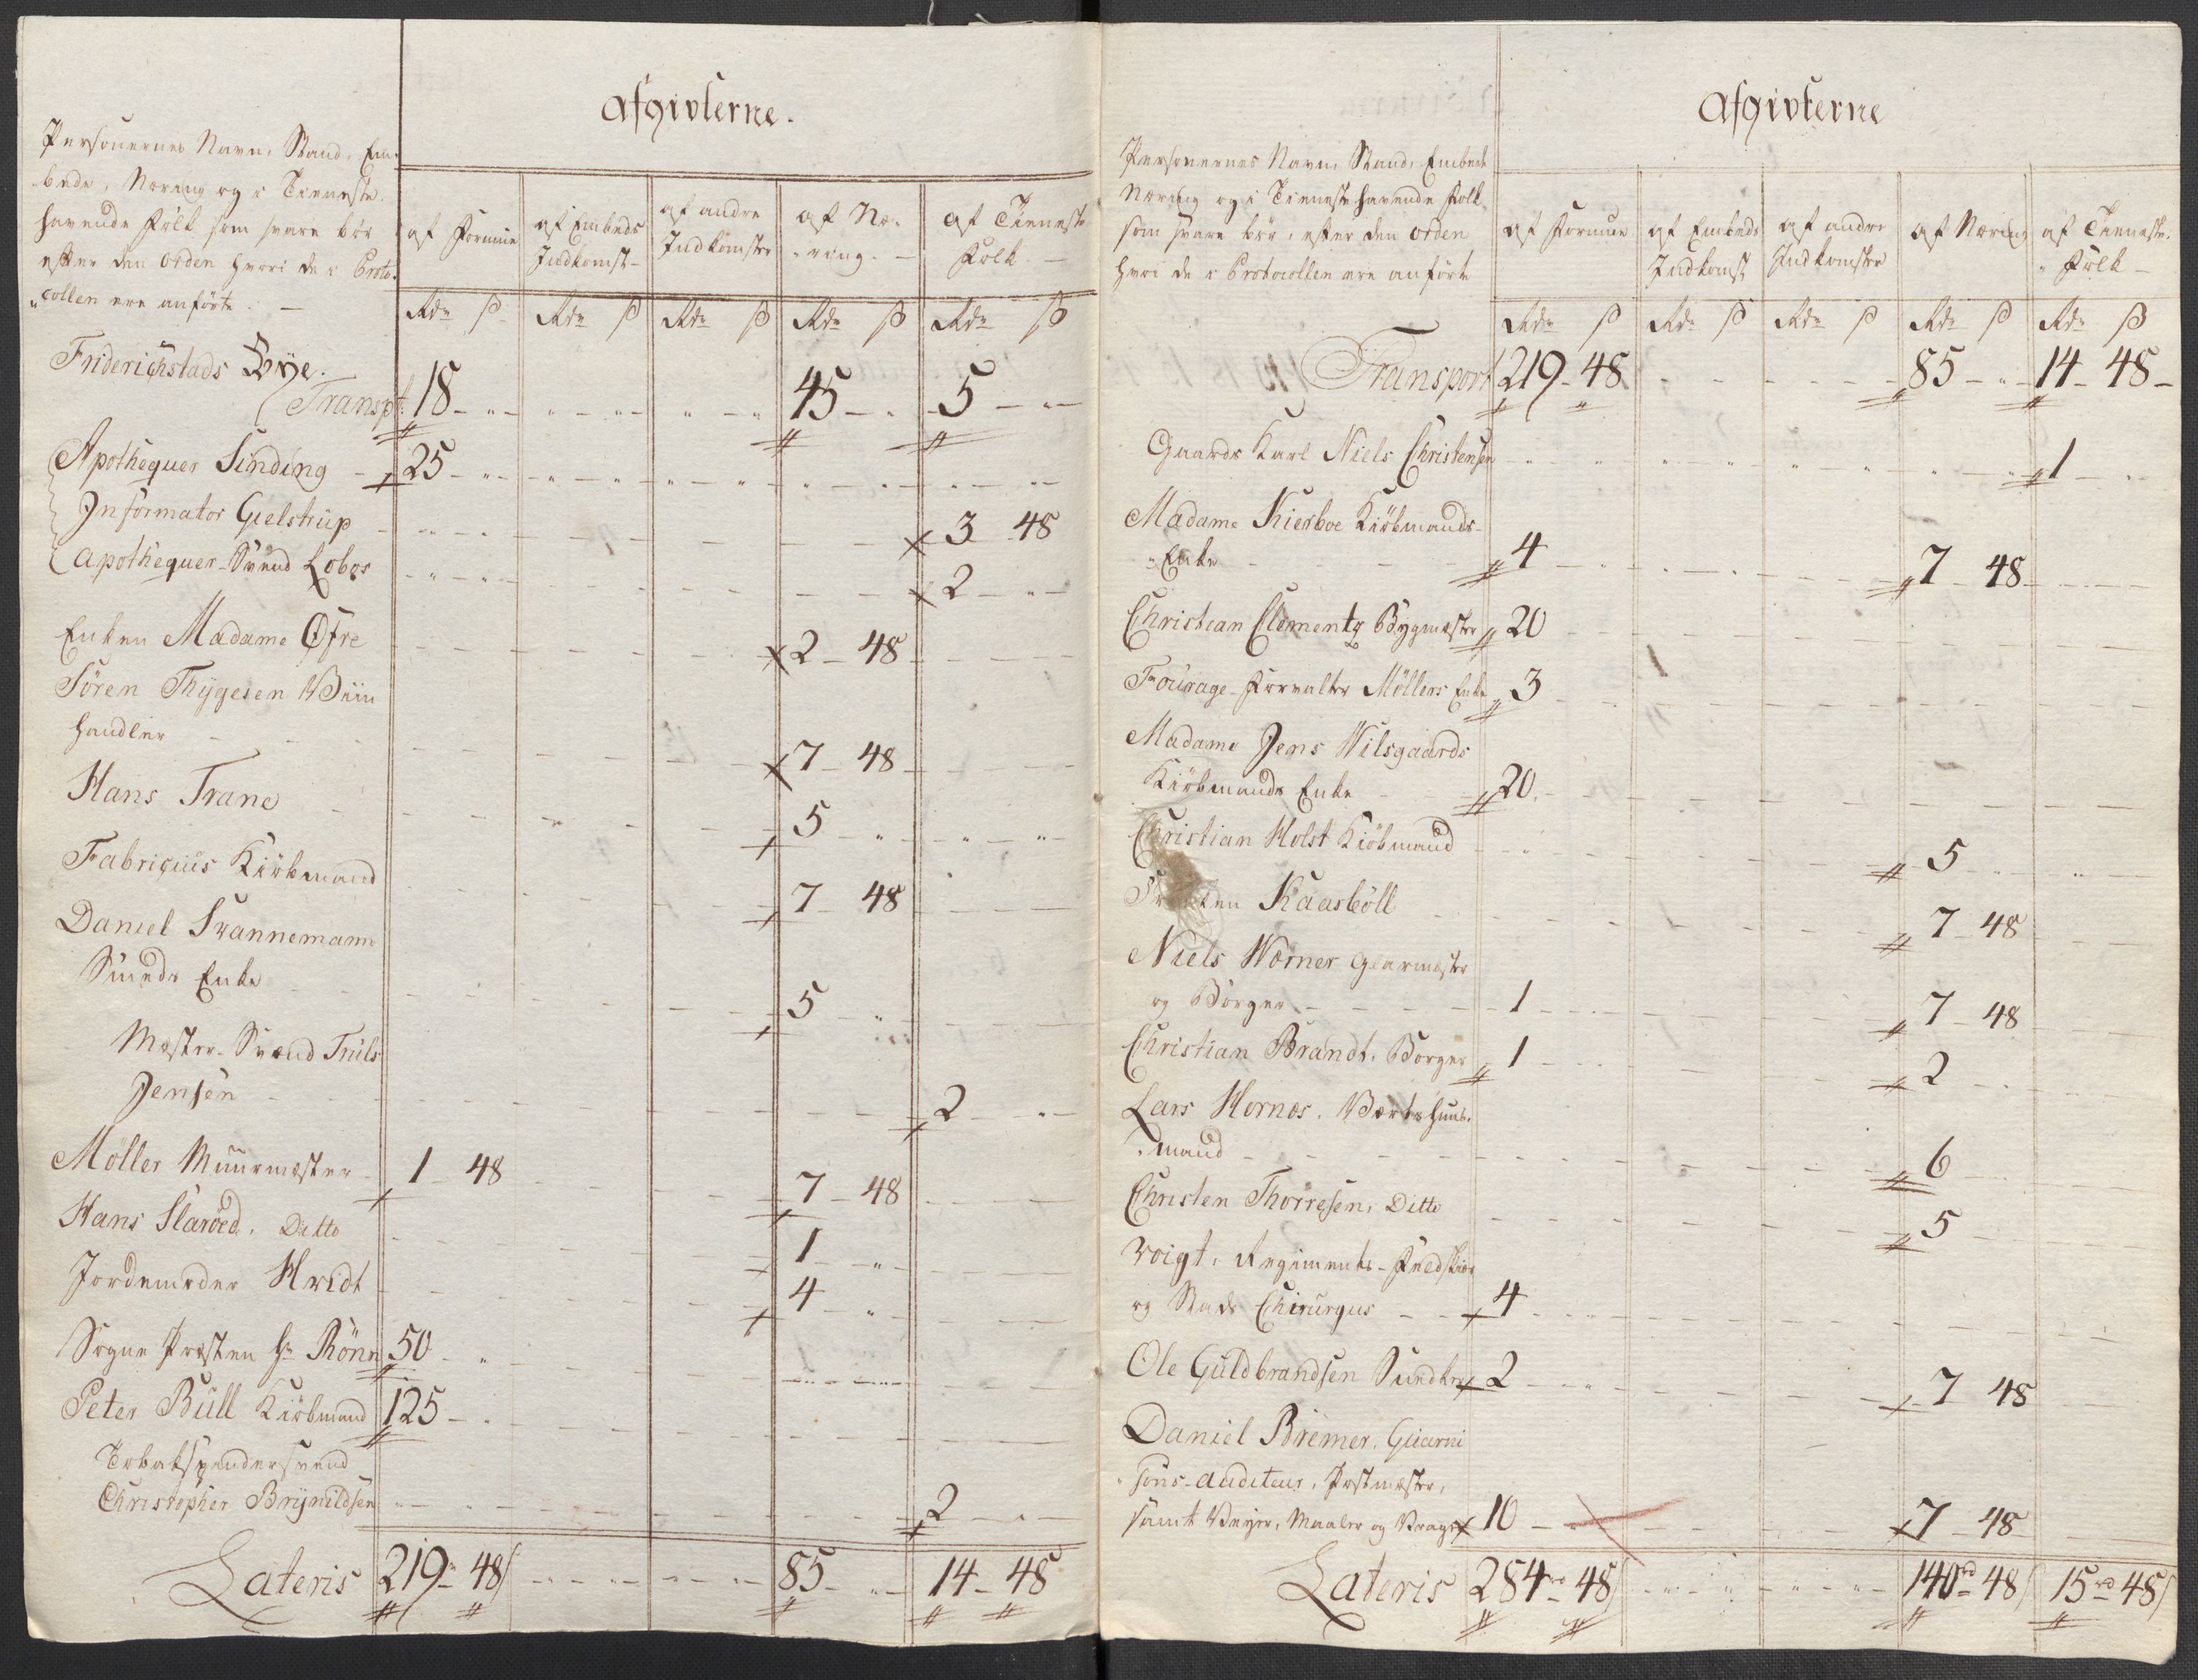 Afgivterne.
Personernes Navn, Stand, Em-
bede, Næring og i Tieneste
havende Folk som svare bör
efter den Orden hvori de i Proto-
collen ere anförte. —
af Formue
af Embeds Indkomst-
af andre Indkomster
af Næ-ring. —
af Tieneste Folk. —
Rdr ß Rdr ß Rdr ß Rdr ß Rdr ß
Friderichstads Bye.
Transpt: 18 - " - 45 - " 5 - " -
Apothequer Sinding - 25 - " -
Informator Gielstrüp - 3 48
Apothequer-Svend Lobos 2 - " -
Enken Madame Øfre 2 - 48
Sören Thygesen Viin
handler 7 - 48
Hans Trane 5 - "
Fabricius Kiöbmand 7 - 48
Daniel Svannemann
Smeds Enke 5 - "
Mester-Svend Truls
Jensen 2 - " -
Möller Muurmester 1 - 48 7 - 48
Hans Slaroed. Ditto 1 - "
Jordemoder Hvidt 4 - "
Sogne Præsten Hr Rönn 50 - "
Peter Büll Kiöbmand 125 - "
Tobakspindersvend
Christopher Brynildsen 2 - " -
Lateris 219 - 48 ß 85 - " - 14 - 48
Afgivterne
Personernes Navn, Stand, Embede
Næring og i Tieneste havende Folk
som svare bör, efter den Orden
hvori de i Protocollen ere anförte
af Formue
af Embeds Indkomst
af andre Indkomster
af Næring
af Tieneste-Folk —
Rdr ß Rdr ß Rdr ß Rdr ß Rdr ß
Transport 219 - 48 85 - " - 14 - 48 -
Gaards Karl Niels Christensen 1 - "
Madame Kierboe Kiöbmands-
Enke 4 7 - 48
Christian Clementz Bygmester 20
Fourage-Forvalter Möllers Enke 3
Madame Jens Wilsgaards
Kiöbmands Enke 20
Christian Holst Kiöbmand 5
Kaasböll 7 - 48
Niels Wærner Glarmester
og Borger 1 7 - 48
Christian Brandt, Borger 1 2
Lars Hornes. Vertshuus-
mand 6
Christen Thorresen, Ditto 5
Voigt, Regiments-Feldskier
og Stads Chirurgus 4
Ole Guldbrandsen 2 7 48
Daniel Bremer, Guarni
sons-Auditeur, Postmester,
samt Veyer, Maaler og Vrager 10 7 - 48
Lateris 284 rd 48 ß 140 rd 48 ß 15 rd 48 ß